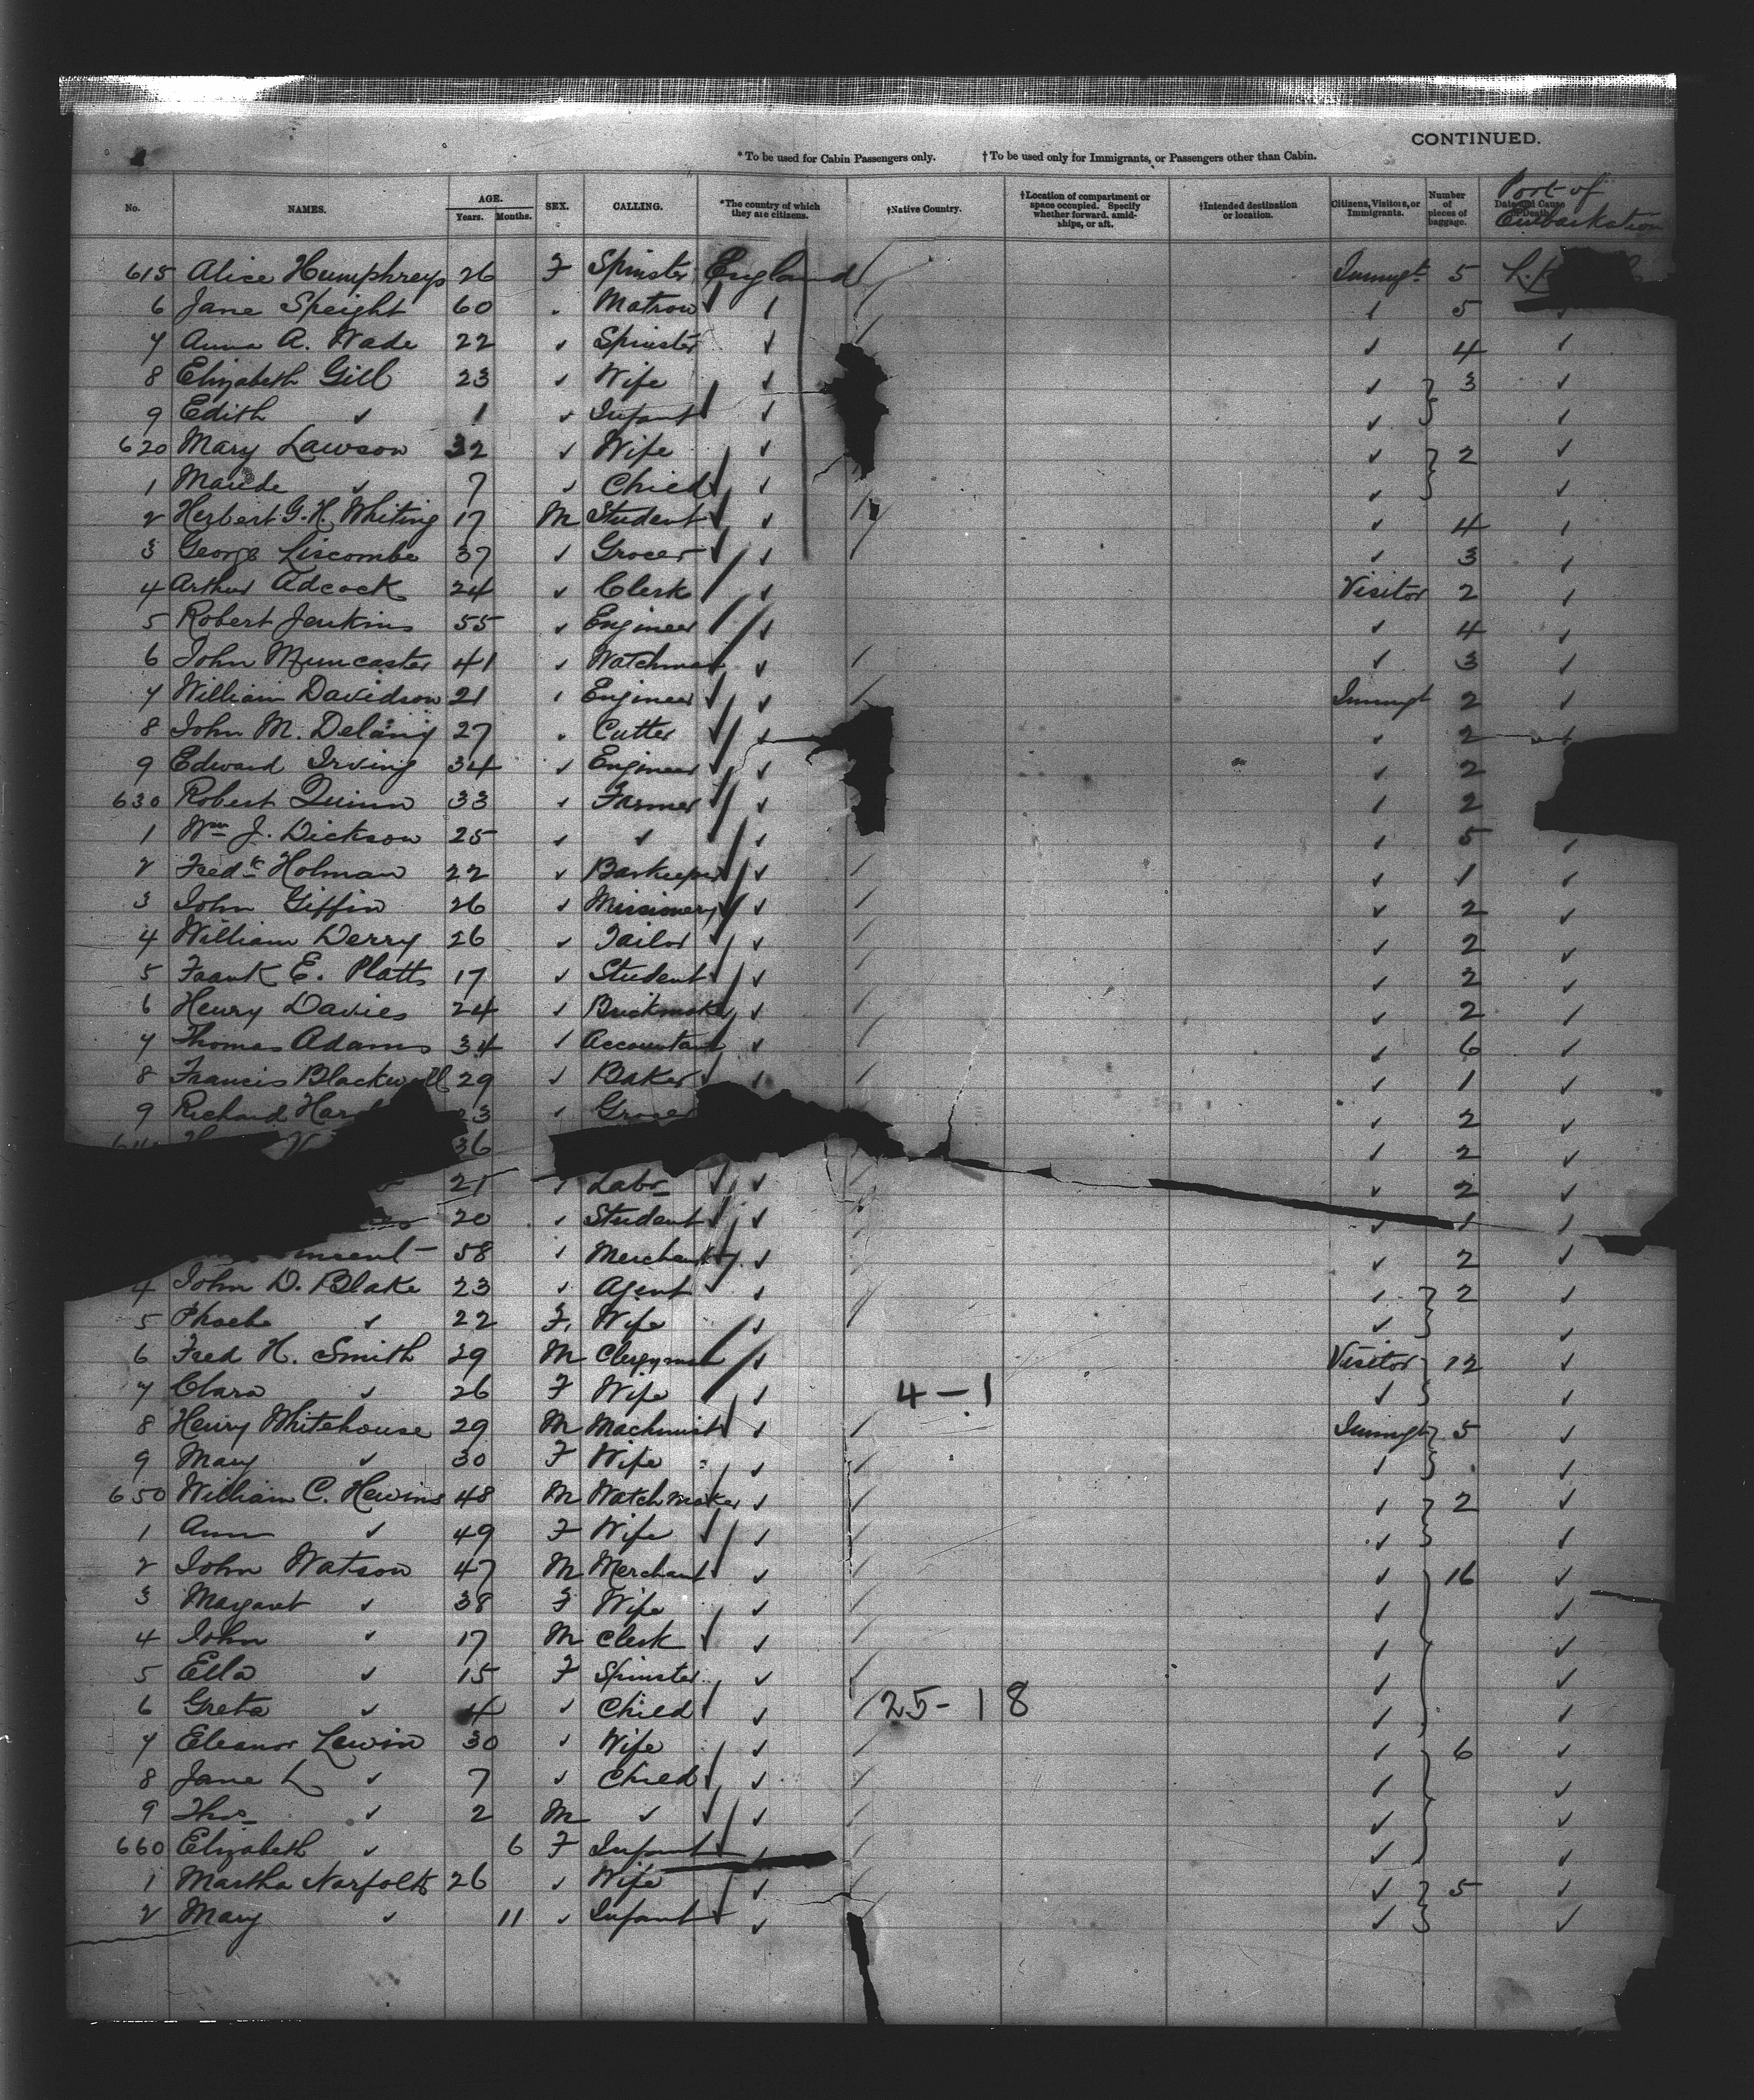 CONTINUED.
*To be used for Cabin Passengers only. †To be used only for Immigrants, or Passengers other than Cabin.
No. NAMES. AGE. Years. Months. SEX. CALLING. *The country of which they are citizens. †Native Country. †Location of compartment or space occupied. Specify whether forward, amidships, or aft. †Intended destination or location. Citizens, Visitors, or Immigrants. Number of pieces of baggage. Port of Embarkation
615 Alice Humphreys 26 F Spinster England Immigt. 5
6 Jane Speight 60 Matron 5
7 Anna A. Wade 22 ✓ Spinster ✓ ✓ 4 ✓
8 Elizabeth Gill 23 ✓ Wife ✓ ✓ 3 ✓
9 Edith ✓ 1 ✓ Infant ✓ ✓ ✓
620 Mary Lawson 32 ✓ Wife ✓ ✓ 2 ✓
1 Maude ✓ 7 ✓ Child ✓ ✓ ✓
2 Herbert G. H. Whiting 17 M Student ✓ ✓ 4 ✓
3 George Liscombe 37 ✓ Grocer ✓ ✓ 3 ✓
4 Arthur Adcock 24 ✓ Clerk ✓ Visitor 2 ✓
5 Robert Jenkins 55 ✓ Engineer ✓ ✓ 4 ✓
6 John Muncaster 41 ✓ Watchman ✓ ✓ 3 ✓
7 William Davidson 21 ✓ Engineer ✓ Immigt 2 ✓
8 John M. Delany 27 ✓ Cutter ✓ ✓ 2
9 Edward Irving 34 ✓ Engineer ✓ ✓ 2
630 Robert Quinn 33 ✓ Farmer ✓ ✓ 2
1 Wm J. Dickson 25 ✓ ✓ ✓ ✓ 5 ✓
2 Fredk Holman 22 ✓ Barkeeper ✓ ✓ 1 ✓
3 John Giffin 26 ✓ Missionery ✓ ✓ 2 ✓
4 William Derry 26 ✓ Tailor ✓ ✓ 2 ✓
5 Frank E. Platts 17 ✓ Student ✓ ✓ 2 ✓
6 Henry Davies 24 ✓ Brickmaker ✓ ✓ 2 ✓
7 Thomas Adams 34 ✓ Accountant ✓ ✓ 6 ✓
8 Francis Blackwell 29 ✓ Baker ✓ ✓ 1 ✓
9 Richard 23 ✓ Grocer ✓ 2 ✓
36 ✓ 2 ✓
21 ✓ Labr ✓ ✓ 2 ✓
20 ✓ Student ✓ ✓ 1 ✓
58 ✓ Merchant ✓ ✓ 2 ✓
4 John D. Blake 23 ✓ Agent ✓ ✓ 2 ✓
5 Phoebe ✓ 22 F. Wife ✓ ✓ ✓
6 Fred H. Smith 29 M Clergyman ✓ Visitor 12 ✓
7 Clara ✓ 26 F Wife ✓ 4 - 1 ✓ ✓
8 Henry Whitehouse 29 M Machinist ✓ Immigt 5 ✓
9 Mary ✓ 30 F Wife ✓ ✓ ✓
650 William C. Hewins 48 M Watchmaker ✓ ✓ 2 ✓
1 Ann ✓ 49 F Wife ✓ ✓ ✓
2 John Watson 47 M Merchant ✓ ✓ 16 ✓
3 Margaret ✓ 38 F Wife ✓ ✓ ✓
4 John ✓ 17 M Clerk ✓ ✓ ✓
5 Ella ✓ 15 F Spinster ✓ ✓ ✓
6 Greta ✓ 4 ✓ Child ✓ 25 - 18 ✓ ✓
7 Eleanor Lewin 30 ✓ Wife ✓ ✓ 6 ✓
8 Jane L ✓ 7 ✓ Child ✓ ✓ ✓
9 Thos ✓ 2 M ✓ ✓ ✓ ✓
660 Elizabeth ✓ 6 F Infant ✓ ✓ ✓
1 Martha Norfolk 26 ✓ Wife ✓ ✓ 5 ✓
2 Mary ✓ 11 ✓ Infant ✓ ✓ ✓